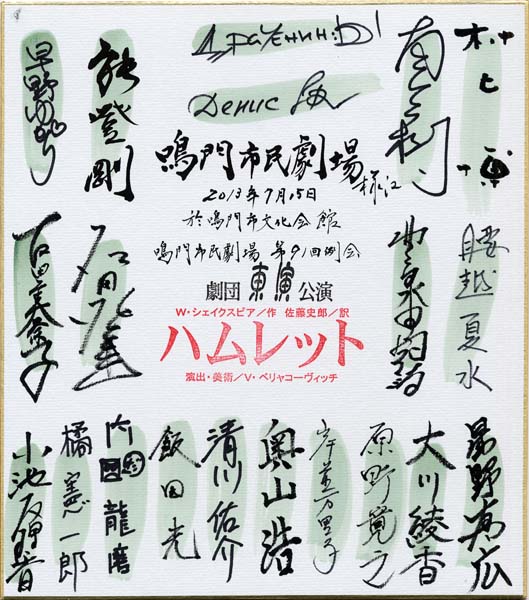 Денис
能登剛
鳴門市民劇場
様江
2013年7月15日
於鳴門市文化会館
鳴門市民劇場 第91回例会
劇団 東演 公演
W・シェイクスピア／作 佐藤史郎／訳
ハムレット
演出・美術／V・ベリャコーヴィッチ
腰越夏水
古田美奈子
星野真広
大川綾香
原野寛之
岸並万里子
奥山浩
清川佑介
飯田光
内田龍磨
橘憲一郎
小池友理香